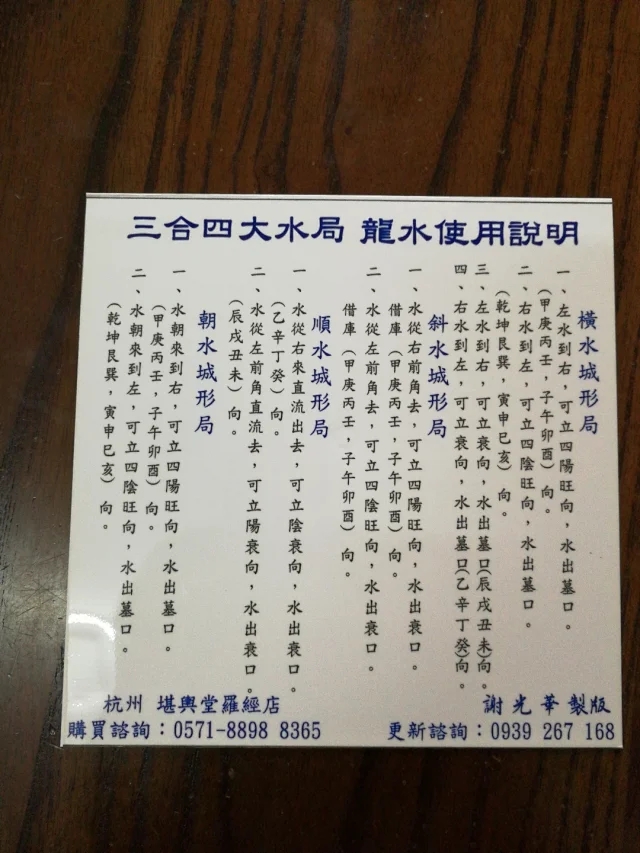 三合四大水局 龍水使用說明
橫水城形局
一、左水到右，可立四陽旺向，水出墓口。
（甲庚丙壬，子午卯酉）向。
二、右水到左，可立四陰旺向，水出墓口。
（乾坤艮巽，寅申巳亥）向。
三、左水到右，可立衰向，水出墓口(辰戌丑未)向。
四、右水到左，可立衰向，水出墓口(乙辛丁癸)向。
斜水城形局
一、水從右前角去，可立四陽旺向，水出衰口。
借庫（甲庚丙壬、子午卯酉）向。
二、水從左前角去，可立四陰旺向，水出衰口。
借庫（甲庚丙壬、子午卯酉）向。
順水城形局
一、水從右來直流出去，可立陰衰向，水出衰口。
（乙辛丁癸）向。
二、水從左前角直流去，可立陽衰向，水出衰口。
（辰戌丑未）向。
朝水城形局
一、水朝來到右，可立四陽旺向，水出墓口。
（甲庚丙壬，子午卯酉）向。
二、水朝來到左，可立四陰旺向，水出墓口。
（乾坤艮巽，寅申巳亥）向。
杭州 堪輿堂羅經店
謝光華製版
購買諮詢：0571-8898 8365
更新諮詢：0939 267 168